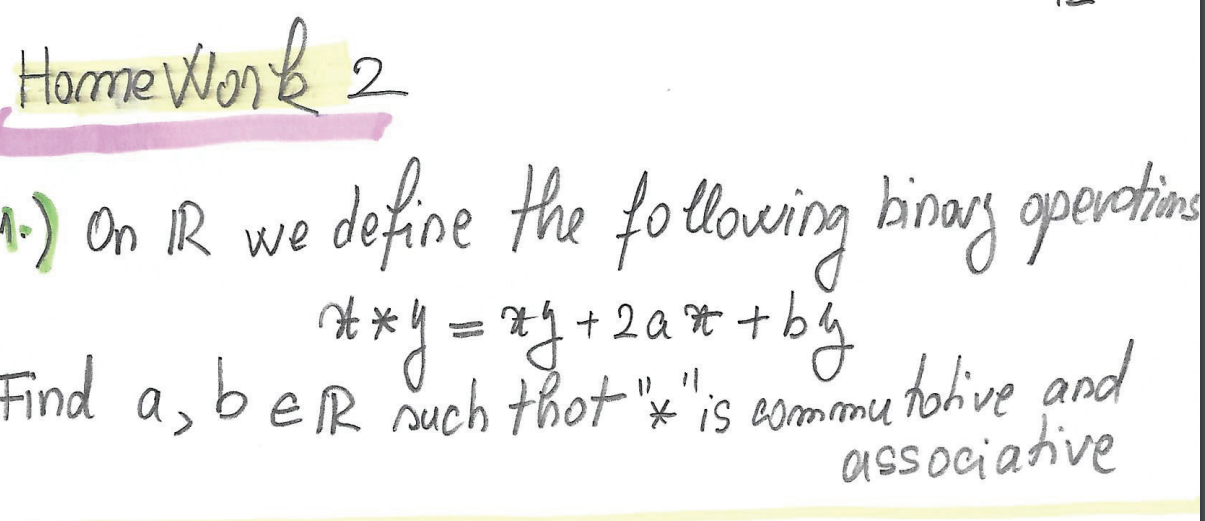 HomeWork 2
1.) On ℝ we define the following binary operations
x * y = xy + 2ax + by
Find a, b ∈ ℝ such that "*" is commutative and
associative